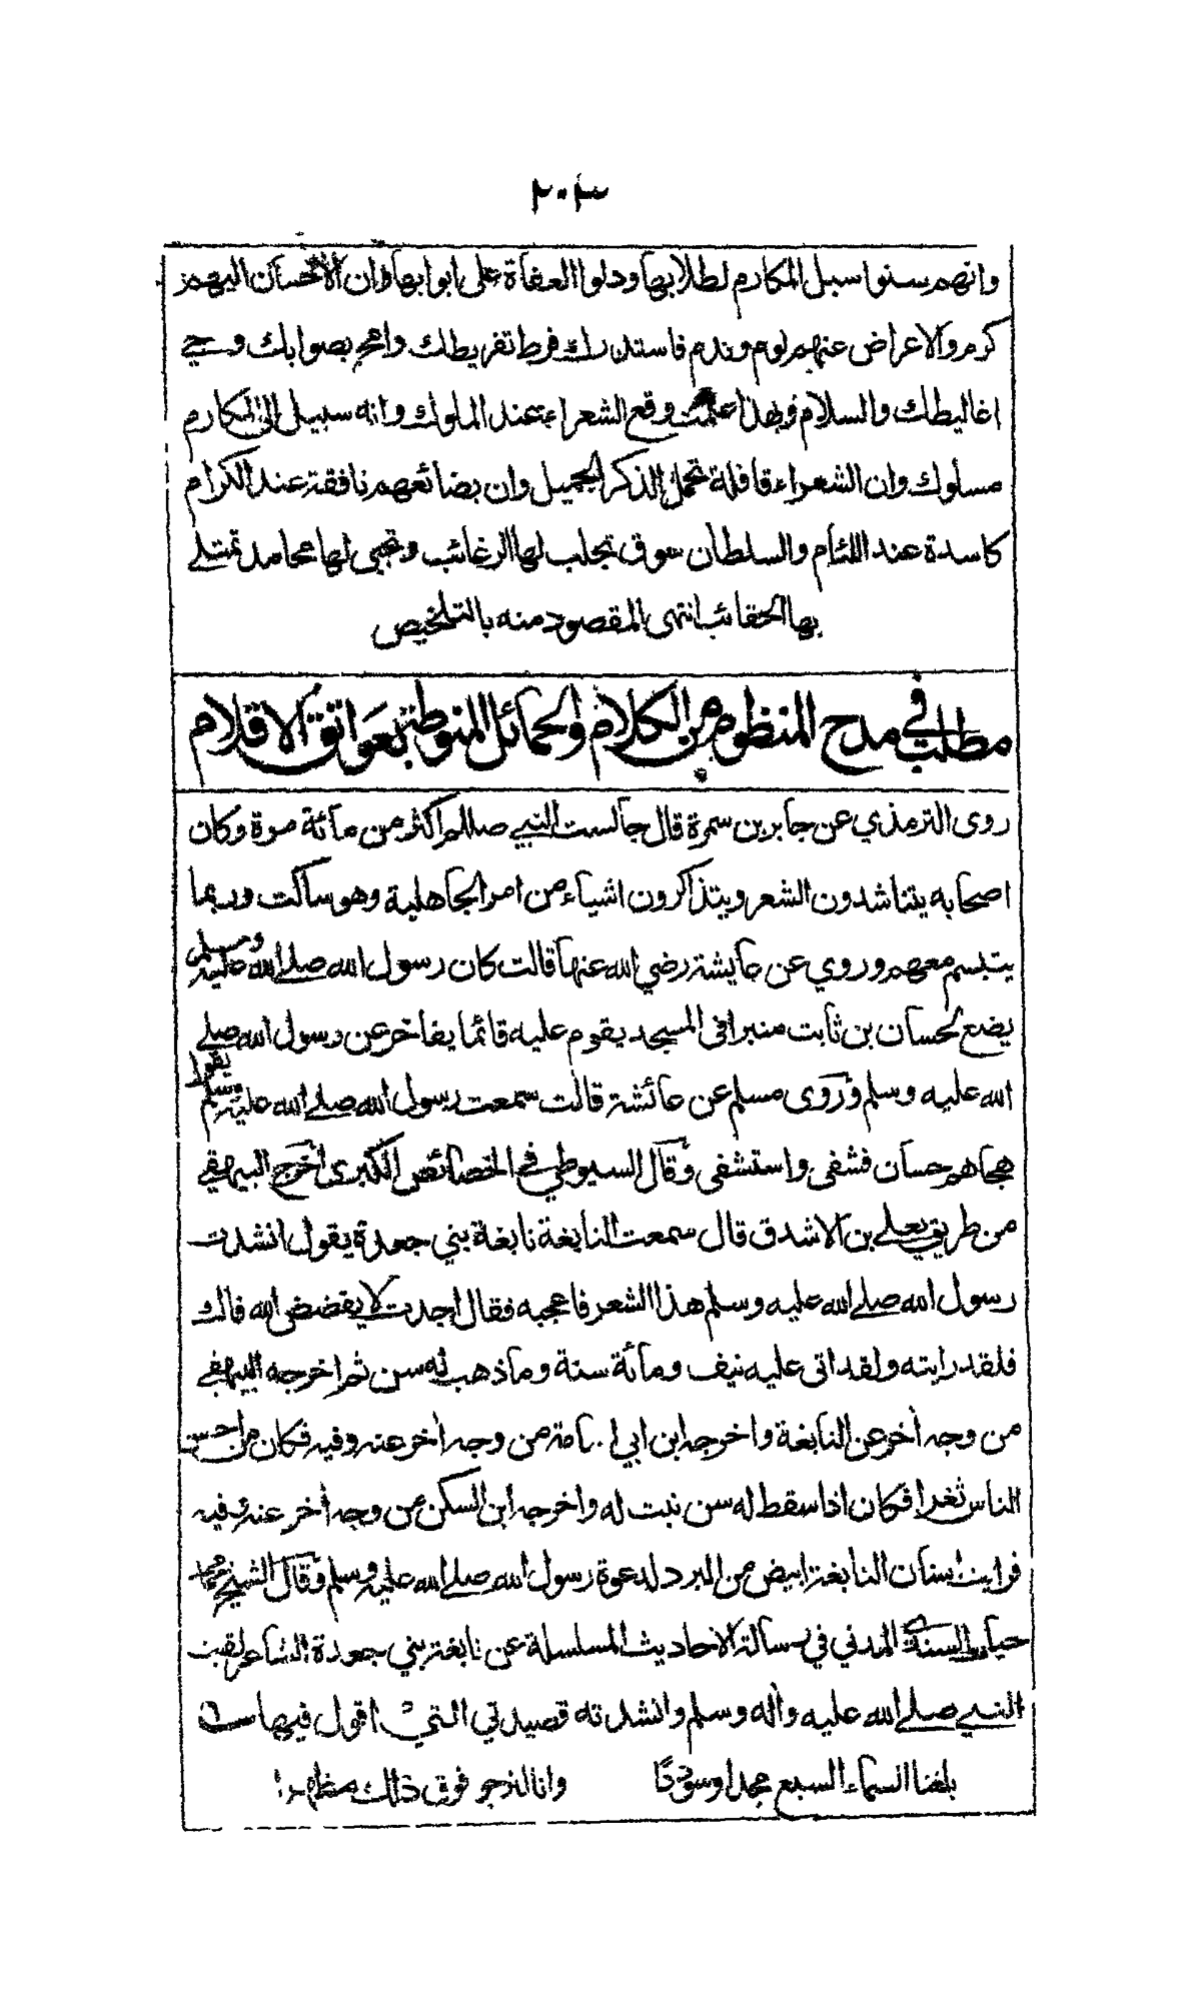 ٢٠٣
وانهم سنوا سبل المكارم لطلابها ودلوا العفاة على ابوابها وان الاحسان اليهم
كرم والاعراض عنهم لوم وندم فاستدرك فرط تفريطك وامح بصوابك وحي
اغاليطك والسلام فبهذا علمت وقع الشعراء عند الملوك وانه سبيل الى المكارم
مسلوك وان الشعراء قافلة تحمل الذكر الجميل وان بضائعهم نافقة عند الكرام
كاسدة عند اللئام والسلطان سوق تجلب لها الرغائب وتجبى لها محامد تمتلے
بها الحقائب انتهى المقصود منه بالتلخيص
مطلب في مدح المنظوم من الكلام والحمائل المنوطة بعواتق الاقلام
روى الترمذي عن جابر بن سمرة قال جالست النبي صللم اكثر من مائة مرة وكان
اصحابه يتناشدون الشعر ويتذاكرون اشياء من امر الجاهلية وهو ساكت وربما
يتبسم معهم وروي عن عايشة رضي الله عنها قالت كان رسول الله صلے الله عليه وسلم
يضع لحسان بن ثابت منبرا في المسجد يقوم عليه قائما يفاخر عن رسول الله صلے
الله عليه وسلم وروى مسلم عن عائشة قالت سمعت رسول الله صلے الله عليه وسلم يقول
هجاهم حسان فشفى واستشفى وقال السيوطي في الخصائص الكبرى اخرج البيهقي
من طريق يعلى بن الاشدق قال سمعت النابغة نابغة بني جعدة يقول انشدت
رسول الله صلے الله عليه وسلم هذا الشعر فاعجبه فقال اجدت لا يفضض الله فاك
فلقد رايته ولقد اتى عليه نيف ومائة سنة وما ذهب له سن ثم اخرجه البيهقي
من وجه أخر عن النابغة واخرجه ابن ابي اسامة من وجه أخر عنه وفيه فكان من احسن
الناس ثغرا فكان اذا سقط له سن نبت له واخرجه ابن السكن من وجه أخر عنه وفيه
فرايت اسنان النابغة ابيض من البرد لدعوة رسول الله صلے الله عليه وسلم وقال الشيخ محمد
حيات السندي المدني في رسالة الاحاديث المسلسلة عن نابغة بني جعدة الشاعر لقيت
النبي صلے الله عليه وأله وسلم وانشدته قصيدتي التي اقول فيها
بلغنا السماء السبع مجدا وسوددًا وانا لنرجو فوق ذلك مظهرا